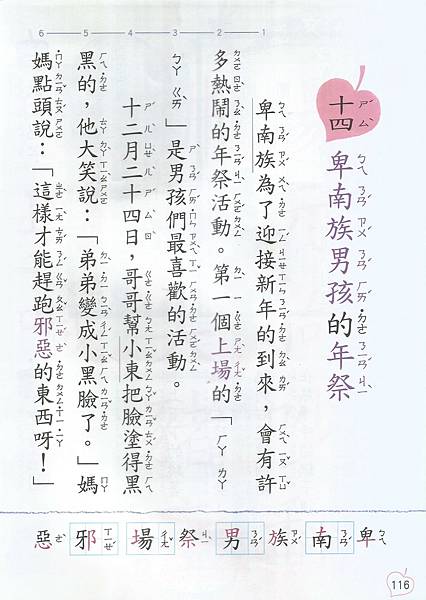 十四 卑南族男孩的年祭
1 2 3 4 5 6
卑南族為了迎接新年的到來，會有許
多熱鬧的年祭活動。第一個上場的「ㄏㄚ ㄌㄚ
ㄅㄚ ㄍㄞ」是男孩們最喜歡的活動。
十二月二十四日，哥哥幫小東把臉塗得黑
黑的，他大笑說：「弟弟變成小黑臉了。」媽
媽點頭說：「這樣才能趕跑邪惡的東西呀！」
卑 南 族 男 祭 場 邪 惡
116